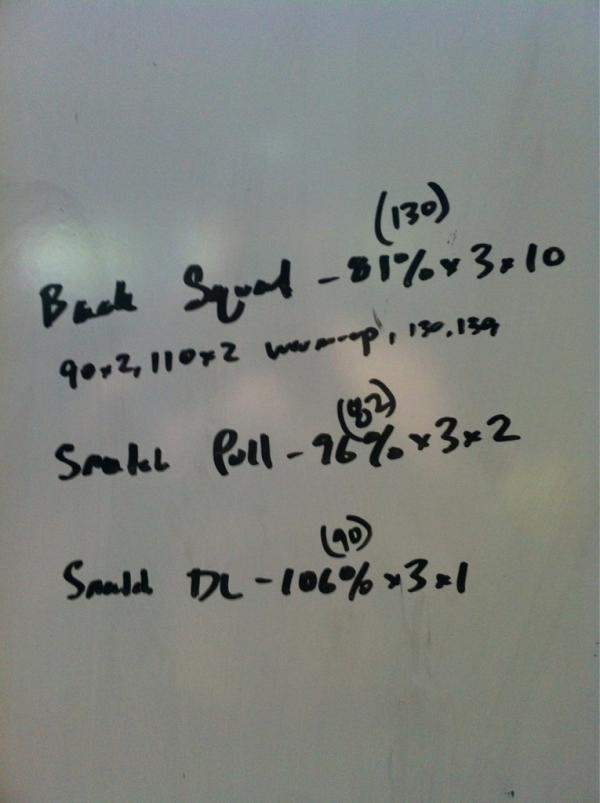 (130)
Back Squat - 81% x 3 x 10
90x2, 110x2 warm-up, 130, 139
(82)
Snatch Pull - 96% x 3 x 2
(90)
Snatch DL - 106% x 3 x 1